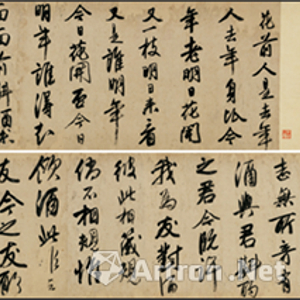 花前人是去年
人去年身比今
年老明日花開
又一枝明日來看
又是誰明年
今日花開否今日
明年誰得知
前斟酒
志無所
酒與君斟酌
之君今既許
我為友對酒
彼此相箴規
倘不相規惟
傾酒此
友今之友
Artron.Net